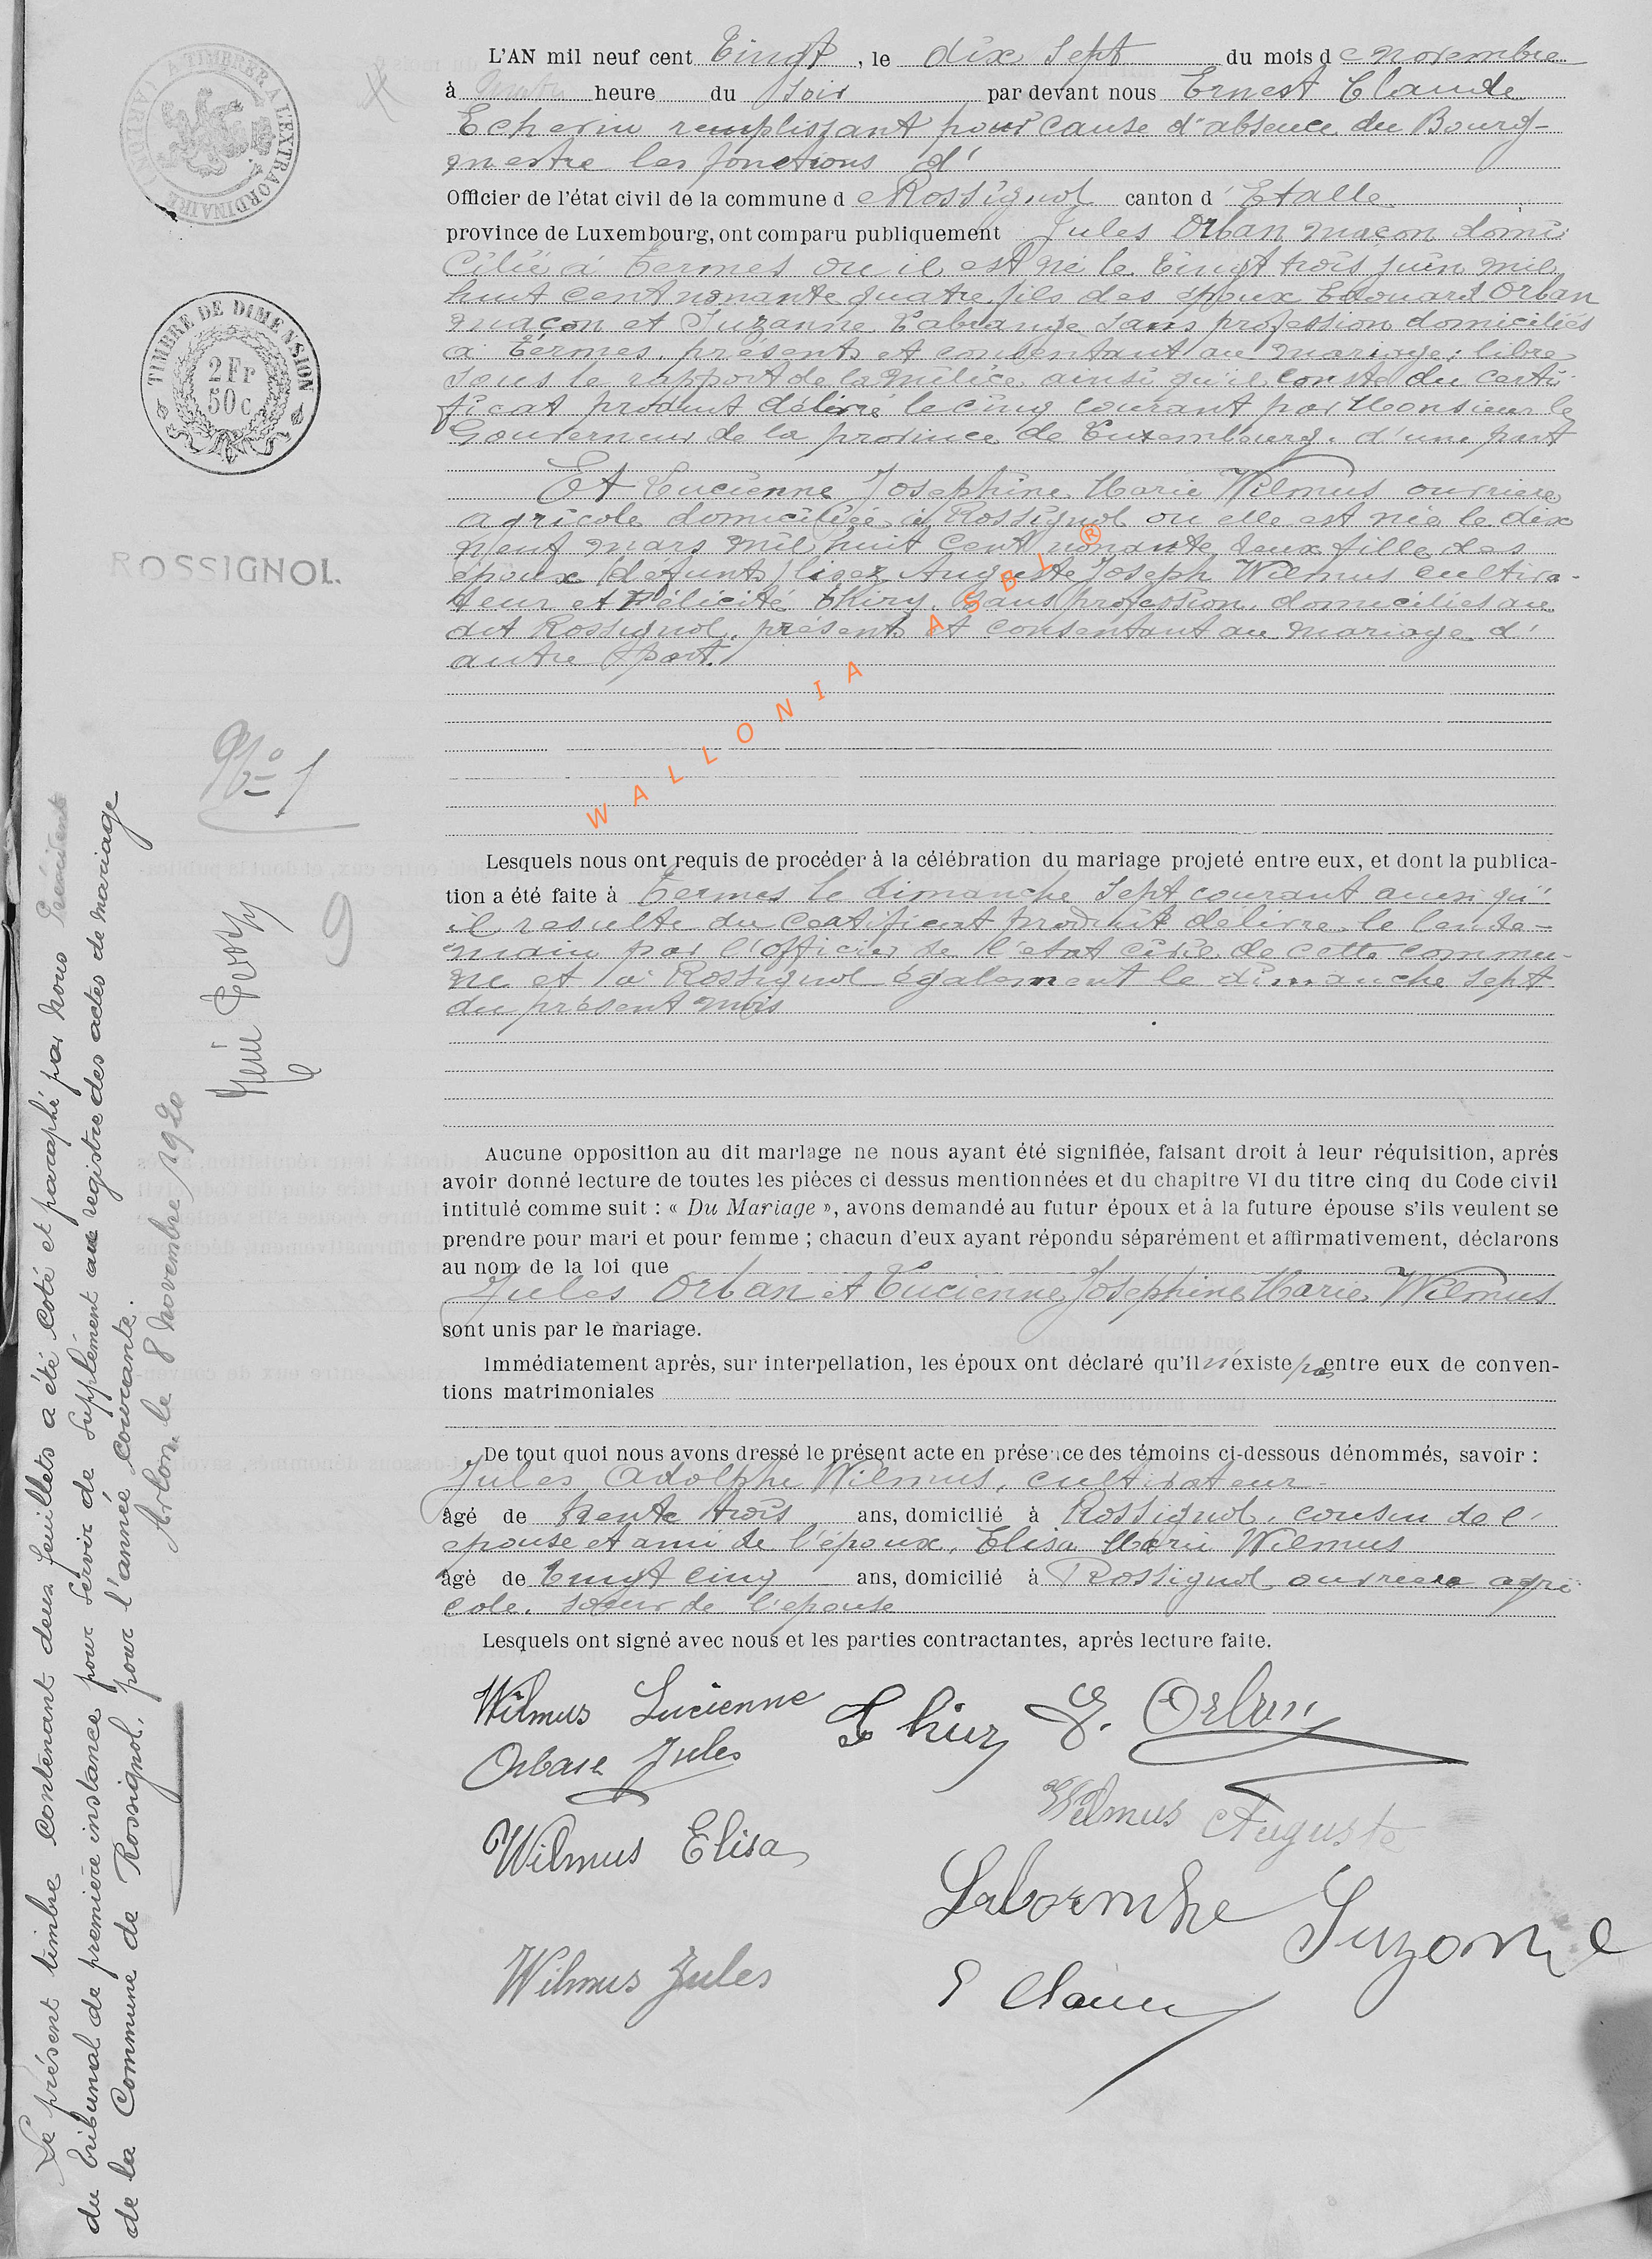 L'AN mil neuf cent Vingt, le dix sept du mois de novembre
à heure du soir par devant nous Ernest Claude
Echevin remplissant pour cause d'absence du Bourg-
mestre les fonctions d'
Officier de l'état civil de la commune de Rossignol canton d'Etalle
province de Luxembourg, ont comparu publiquement Jules Orban maçon domi
cilié à Termes ou il est né le vingt trois juin mil
huit cent nonante quatre fils des époux Edouard Orban
maçon et Suzanne Labranche sans profession domiciliés
à Termes, présents et consentant au mariage; libre
sous le rapport de la milice ainsi qu'il conste du certi
ficat produit délivré le cinq courant par Monsieur le
Gouverneur de la province de Luxembourg, d'une part
Et Lucienne Josephine Marie Wilmus ouvriere
agricole domiciliée à Rossignol ou elle est née le dix
neuf mars mil huit cent nonante deux fille des
époux (defunts) lisez Auguste Joseph Wilmus cultiva-
teur et Félicité Thiry, sans profession, domiciliés au
dit Rossignol, présents et consentant au mariage d'
autre part.
WALLONIA ASBL ®
Lesquels nous ont requis de procéder à la célébration du mariage projeté entre eux, et dont la publica-
tion a été faite à Termes le dimanche sept courant ainsi qu'
il resulte du certificat produit délivré le lende-
main par l'officier de l'état civil de cette commu-
ne et à Rossignol également le dimanche sept
du présent mois
Aucune opposition au dit mariage ne nous ayant été signifiée, faisant droit à leur réquisition, après
avoir donné lecture de toutes les pièces ci dessus mentionnées et du chapitre VI du titre cinq du Code civil
intitulé comme suit : « Du Mariage », avons demandé au futur époux et à la future épouse s'ils veulent se
prendre pour mari et pour femme ; chacun d'eux ayant répondu séparément et affirmativement, déclarons
au nom de la loi que
Jules Orban et Lucienne Josephine Marie Wilmus
sont unis par le mariage.
Immédiatement après, sur interpellation, les époux ont déclaré qu'il n'existe pas entre eux de conven-
tions matrimoniales
De tout quoi nous avons dressé le présent acte en présence des témoins ci-dessous dénommés, savoir :
Jules Adolphe Wilmus, cultivateur
âgé de trente trois ans, domicilié à Rossignol, cousin de l'
epouse et ami de l'époux, Elisa Marie Wilmus
âgé de Vingt cinq ans, domicilié à Rossignol ouvriere agri
cole, soeur de l'epouse
Lesquels ont signé avec nous et les parties contractantes, après lecture faite.
Wilmus Lucienne
Thiry
E. Orban
Orban Jules
Wilmus Auguste
Wilmus Elisa
Labranche Suzanne
Wilmus Jules
E Claude
TIMBRE A L'EXTRAORDINAIRE
TIMBRE DE DIMENSION
2 Fr
50 c
ROSSIGNOL.
No 1
9
Le présent timbre contenant deux feuillets a été coté et paraphé par Nous Président
du tribunal de première instance pour servir de supplément au registre des actes de mariage
de la Commune de Rossignol, pour l'année courante.
Arlon, le 8 novembre 1920